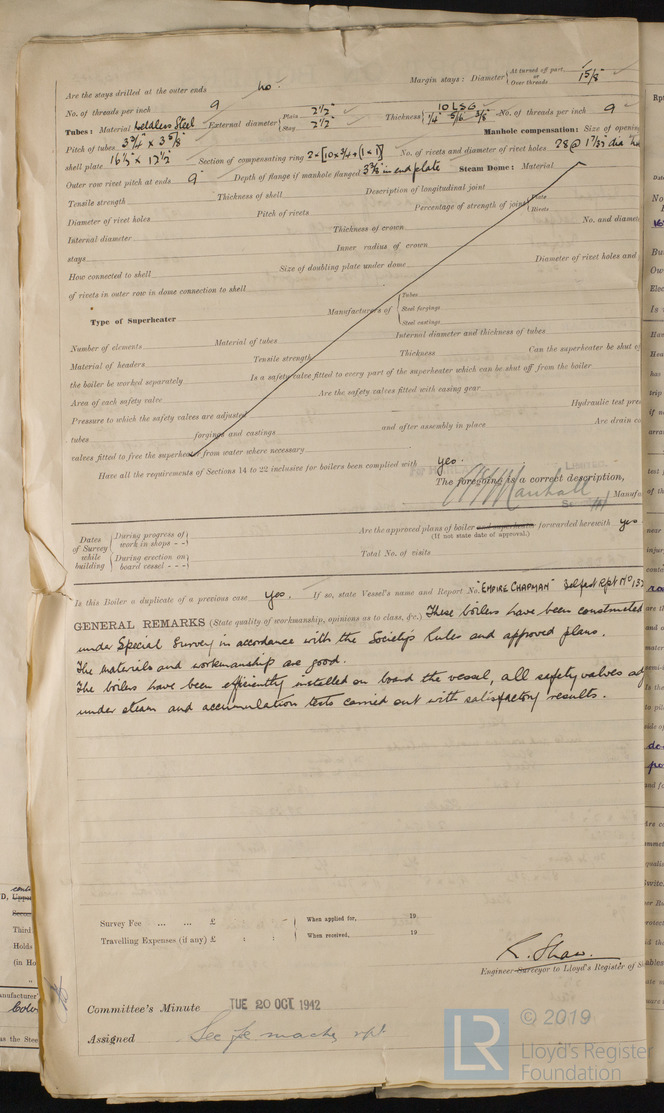 Are the stays drilled at the outer ends no. Margin stays: Diameter At turned off part, or Over threads 1 5/8"
No. of threads per inch 9
Tubes: Material Weldless Steel External diameter Plain 2½" Stay 2½" Thickness 10 LSG ¼" 5/16" 3/8" No. of threads per inch 9
Pitch of tubes 3¾" x 3⅝" Manhole compensation: Size of opening
shell plate 16½" x 12½" Section of compensating ring 2x[10x¾+(1x1)] No. of rivets and diameter of rivet holes 28 @ 1 7/32" dia
Outer row rivet pitch at ends 9" Depth of flange if manhole flanged 3⅜" in end plate Steam Dome: Material
Tensile strength Thickness of shell Description of longitudinal joint
Diameter of rivet holes Pitch of rivets Percentage of strength of joint Plate Rivets
Internal diameter Thickness of crown No. and diamete
stays Inner radius of crown
How connected to shell Size of doubling plate under dome Diameter of rivet holes and
of rivets in outer row in dome connection to shell
Type of Superheater Manufacturers of Tubes Steel forgings Steel castings
Number of elements Material of tubes Internal diameter and thickness of tubes
Material of headers Tensile strength Thickness Can the superheater be shut of
the boiler be worked separately Is a safety valve fitted to every part of the superheater which can be shut off from the boiler
Area of each safety valve Are the safety valves fitted with easing gear
Pressure to which the safety valves are adjusted Hydraulic test pre
tubes forgings and castings and after assembly in place Are drain co
valves fitted to free the superheater from water where necessary
Have all the requirements of Sections 14 to 22 inclusive for boilers been complied with yes.
LIMITED.
The foregoing is a correct description,
Marshall Manufa
Dates of Survey while building During progress of work in shops - - During erection on board vessel - - -
Are the approved plans of boiler and superheater forwarded herewith yes
(If not state date of approval.)
Total No. of visits
Is this Boiler a duplicate of a previous case yes. If so, state Vessel's name and Report No. "EMPIRE CHAPMAN" Belfast Rpt No 137
GENERAL REMARKS (State quality of workmanship, opinions as to class, &c.) These boilers have been constructed
under Special Survey in accordance with the Society's Rules and approved plans.
The materials and workmanship are good.
The boilers have been efficiently installed on board the vessel, all safety valves adj
under steam and accumulation tests carried out with satisfactory results.
Survey Fee ... ... £ : : When applied for, 19
Travelling Expenses (if any) £ : : When received, 19
R. Shaw.
Engineer Surveyor to Lloyd's Register of S
Committee's Minute TUE 20 OCT 1942
Assigned See fe machy rpt.
LR © 2019
Lloyd's Register
Foundation